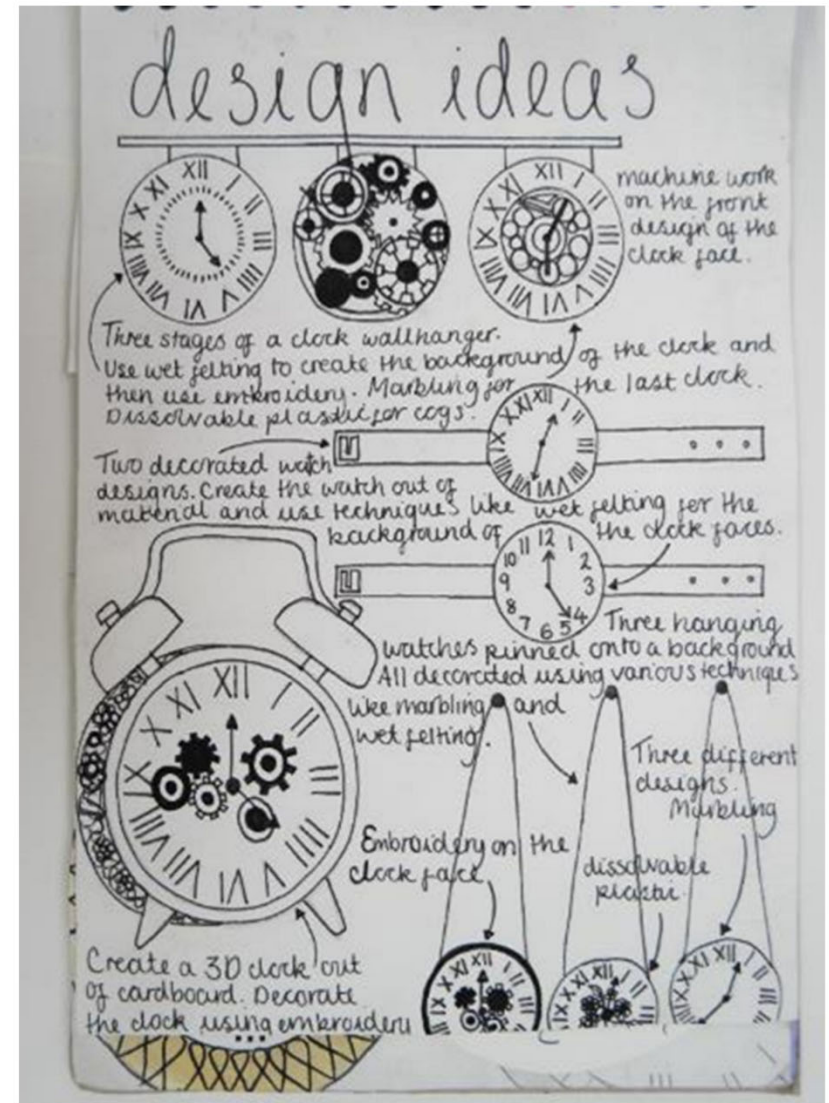 design ideas
XII I II III IIII V VI VII VIII IX X XI
XII I II III IIII V VI VII VIII IX X XI
machine work
on the front
design of the
clock face.
Three stages of a clock wallhanger.
Use wet felting to create the background of the clock and
then use embroidery. Marbling for the last clock.
Dissolvable plastic for cogs.
Two decorated watch
designs. Create the watch out of
material and use techniques like wet felting for the
background of the clock faces.
12 1 2 3 4 5 6 7 8 9 10 11
Three hanging
watches pinned onto a background
All decorated using various techniques
like marbling and
wet felting.
Three different
designs.
Marbling
Embroidery on the
clock face
dissolvable
plastic
Create a 3D clock out
of cardboard. Decorate
the clock using embroidery